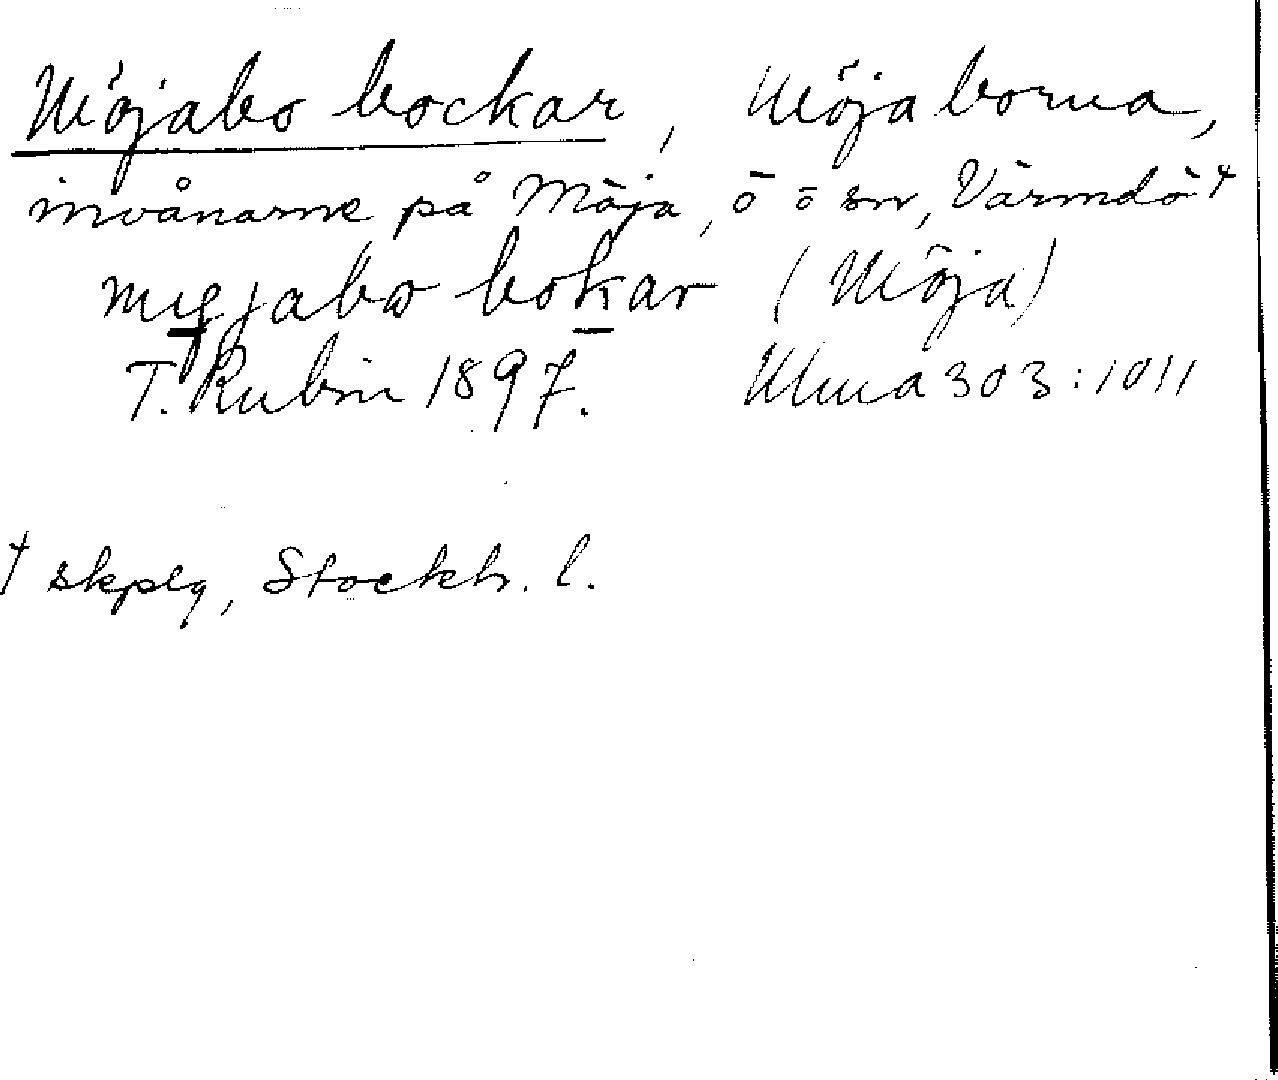 Möjabo bockar, Möjaborna,
invånarne på Möja, ö o sn, Värmdö+
bokar (Möja)
T. Rubin 1897. Ulma 303:1011
+ skplg, Stockh. l.